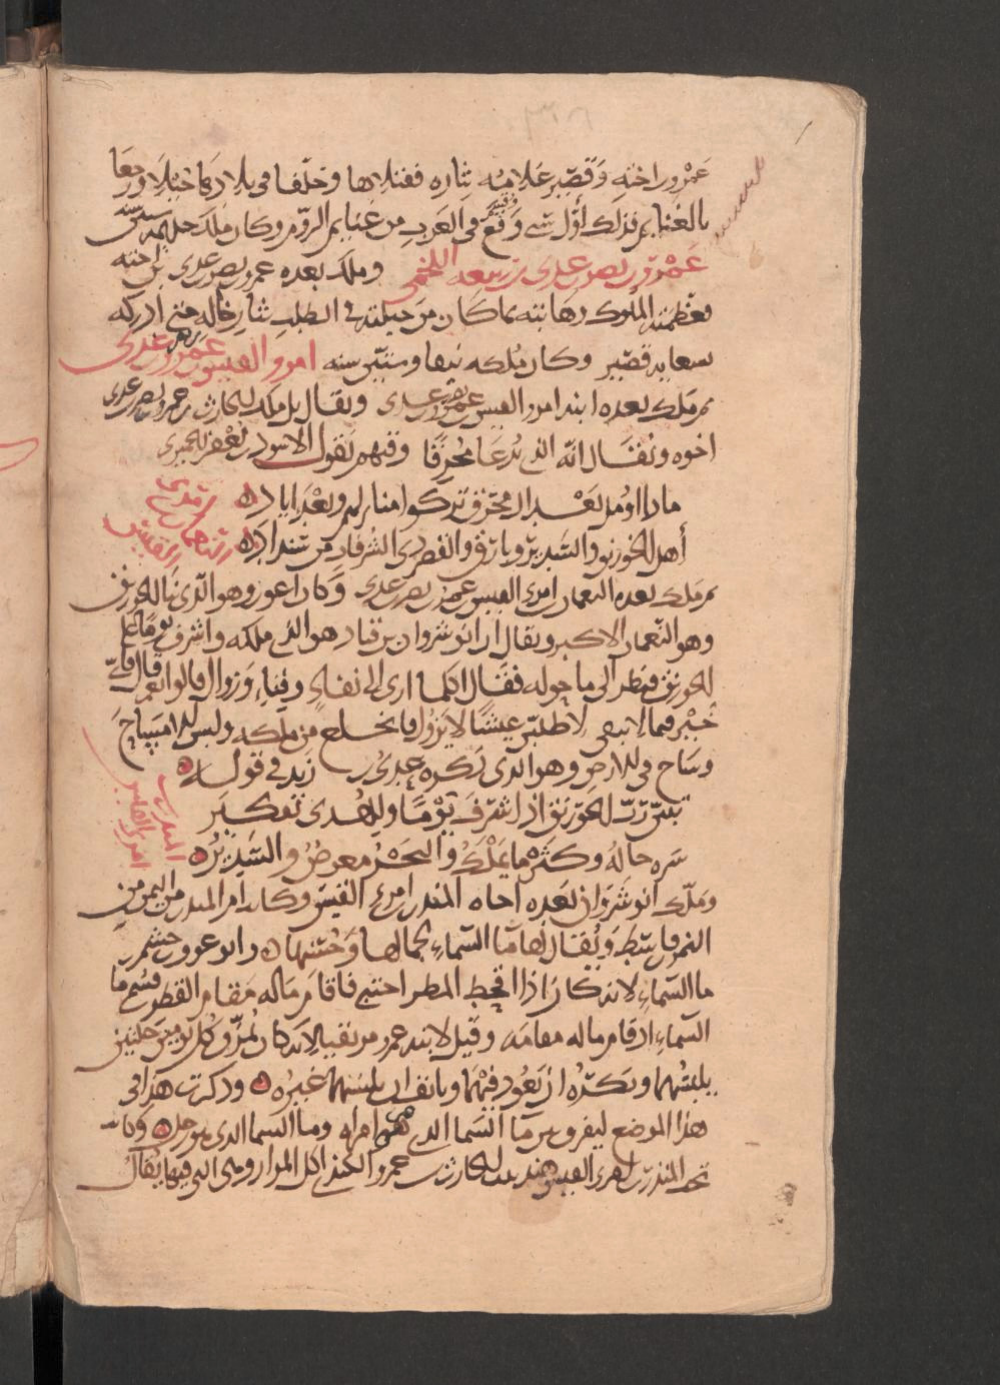 عَمْرو بن اخته وَقَصِير غلامه بثاره فقتلاها وخلّفا في بلادها خيلا ورجعا
بالغنايم فذلك اوّل شي وقع في العرب من غنايم الروم وكان ملك جذيمه ستين
عَمْرو بن نصر بن عدى بن ربيعه اللخمى وملك بعده عمرو بن نصر بن عدى بن اخته
فعظّمته الملوك وهابته بما كان من حيلته في الطلب بثار خاله حتى ادركه
بسعايه قصير وكان ملكه نيفا وستين سنه امرو القيس بن عمرو بن عدى
ثم ملك بعده ابنه امرو القيس بن عمرو بن عدى ويقال بل ملك الحارث بن عمرو بن نصر بن عدى
اخوه ويقال انّه الذى يُدعا مُحرّقا وفيهم يقول الاسود بن يعفر
ماذا اومل بعد ال محرّق تركوا منازلهم وبعد اياد
أهل الخورنق والسَّدير وبارق والقصر ذى الشرفات من سنداد
ثم ملك بعده النعمان بن امرى القيس بن عمرو بن نصر بن عدى وكان اعور وهو الّذى بنا الخورنق
وهو النّعمان الاكبر ويقال ان انوشروان بن قباد هو الذى ملكه واشرف يوما على
الخورنق فنظر الى ما حوله فقال اكل ما ارى الى نفاد وفناء وزوال قالوا نعم قال فاىّ
خَيْر فيما لا يبقى لاطلبن عيشًا لا يزول فانخلع من ملكه ولبس الامساح
وساح في الارض وهو الذى ذكره عدى بن زيد في قوله
تبيّن ربّ الخورنق اذ اشرف يَوْمًا وللهُدى تفكير
سَره حالهُ وكثرة ما يَمْلك والبحر معرضٌ والسّدير
وملّك انوشروان بعده اخاه المنذر بن امرئ القيس وكانت ام المنذر من اليمن من
النمر بن قاسط ويُقال لها ما السّماء لجمالها وحُسنها
ما السماء لانه كان اذا اقحط المطر احتبى فاقام ماله مقام القطر فسُمّى ما
السماء اذ قام ماله مقامه وقيل لابنه عمرو مزيقيا لانه كان يُمزّق كل يوم حلتين
يلبسُهما ويكره ان يعُود فيهما ويانف ان يلبسهما غيره وذكرت هذا في
هذا الموضع ليفرق بين ما السّما التى هى امراه وما السما الذى هو رجل وكانت
تحت المنذر بن امرى القيس هند بنت الحارث بن عمرو الكندى اكل المرار وهى التى فيها يُقال
المنذر بن
امرئ القيس